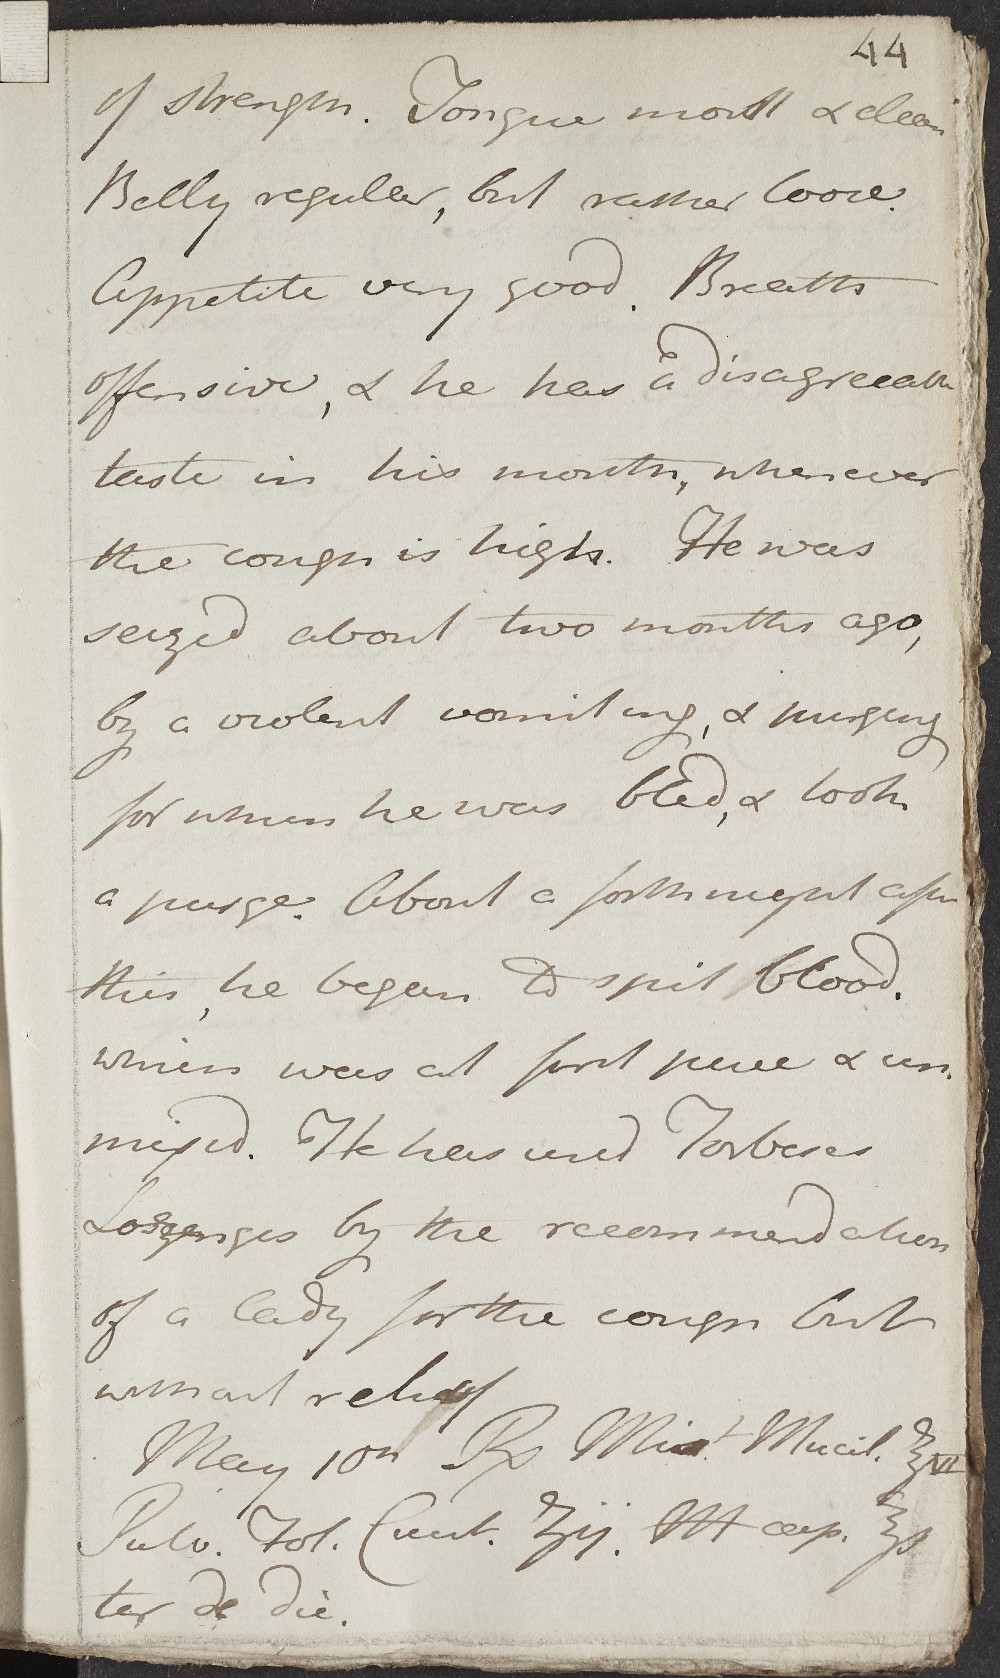 44
of strength. Tongue moist & clean
Belly regular, but rather loose.
Appetite very good. Breath
offensive, & he has a disagreeable
taste in his mouth, whenever
the cough is high. He was
seized about two months ago,
by a violent vomiting, & purging
for which he was bled, & took
a purge. About a forthnight after
this, he began to spit blood.
which was at first pure & un
mixed. He has used Forbeses
Lozenges by the recommendation
of a lady for the cough but
without relief
May 10th Rx Mist. Mucil. ℥VII
Pulv. Fol. ʒij. M cap. ℥ß
ter de die.